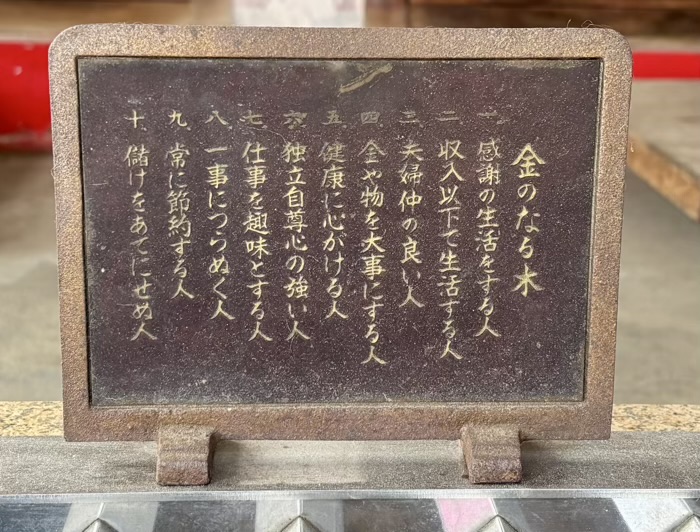 金のなる木
一、感謝の生活をする人
二、収入以下で生活する人
三、夫婦仲の良い人
四、金や物を大事にする人
五、健康に心がける人
六、独立自尊心の強い人
七、仕事を趣味とする人
八、一事につらぬく人
九、常に節約する人
十、儲けをあてにせぬ人